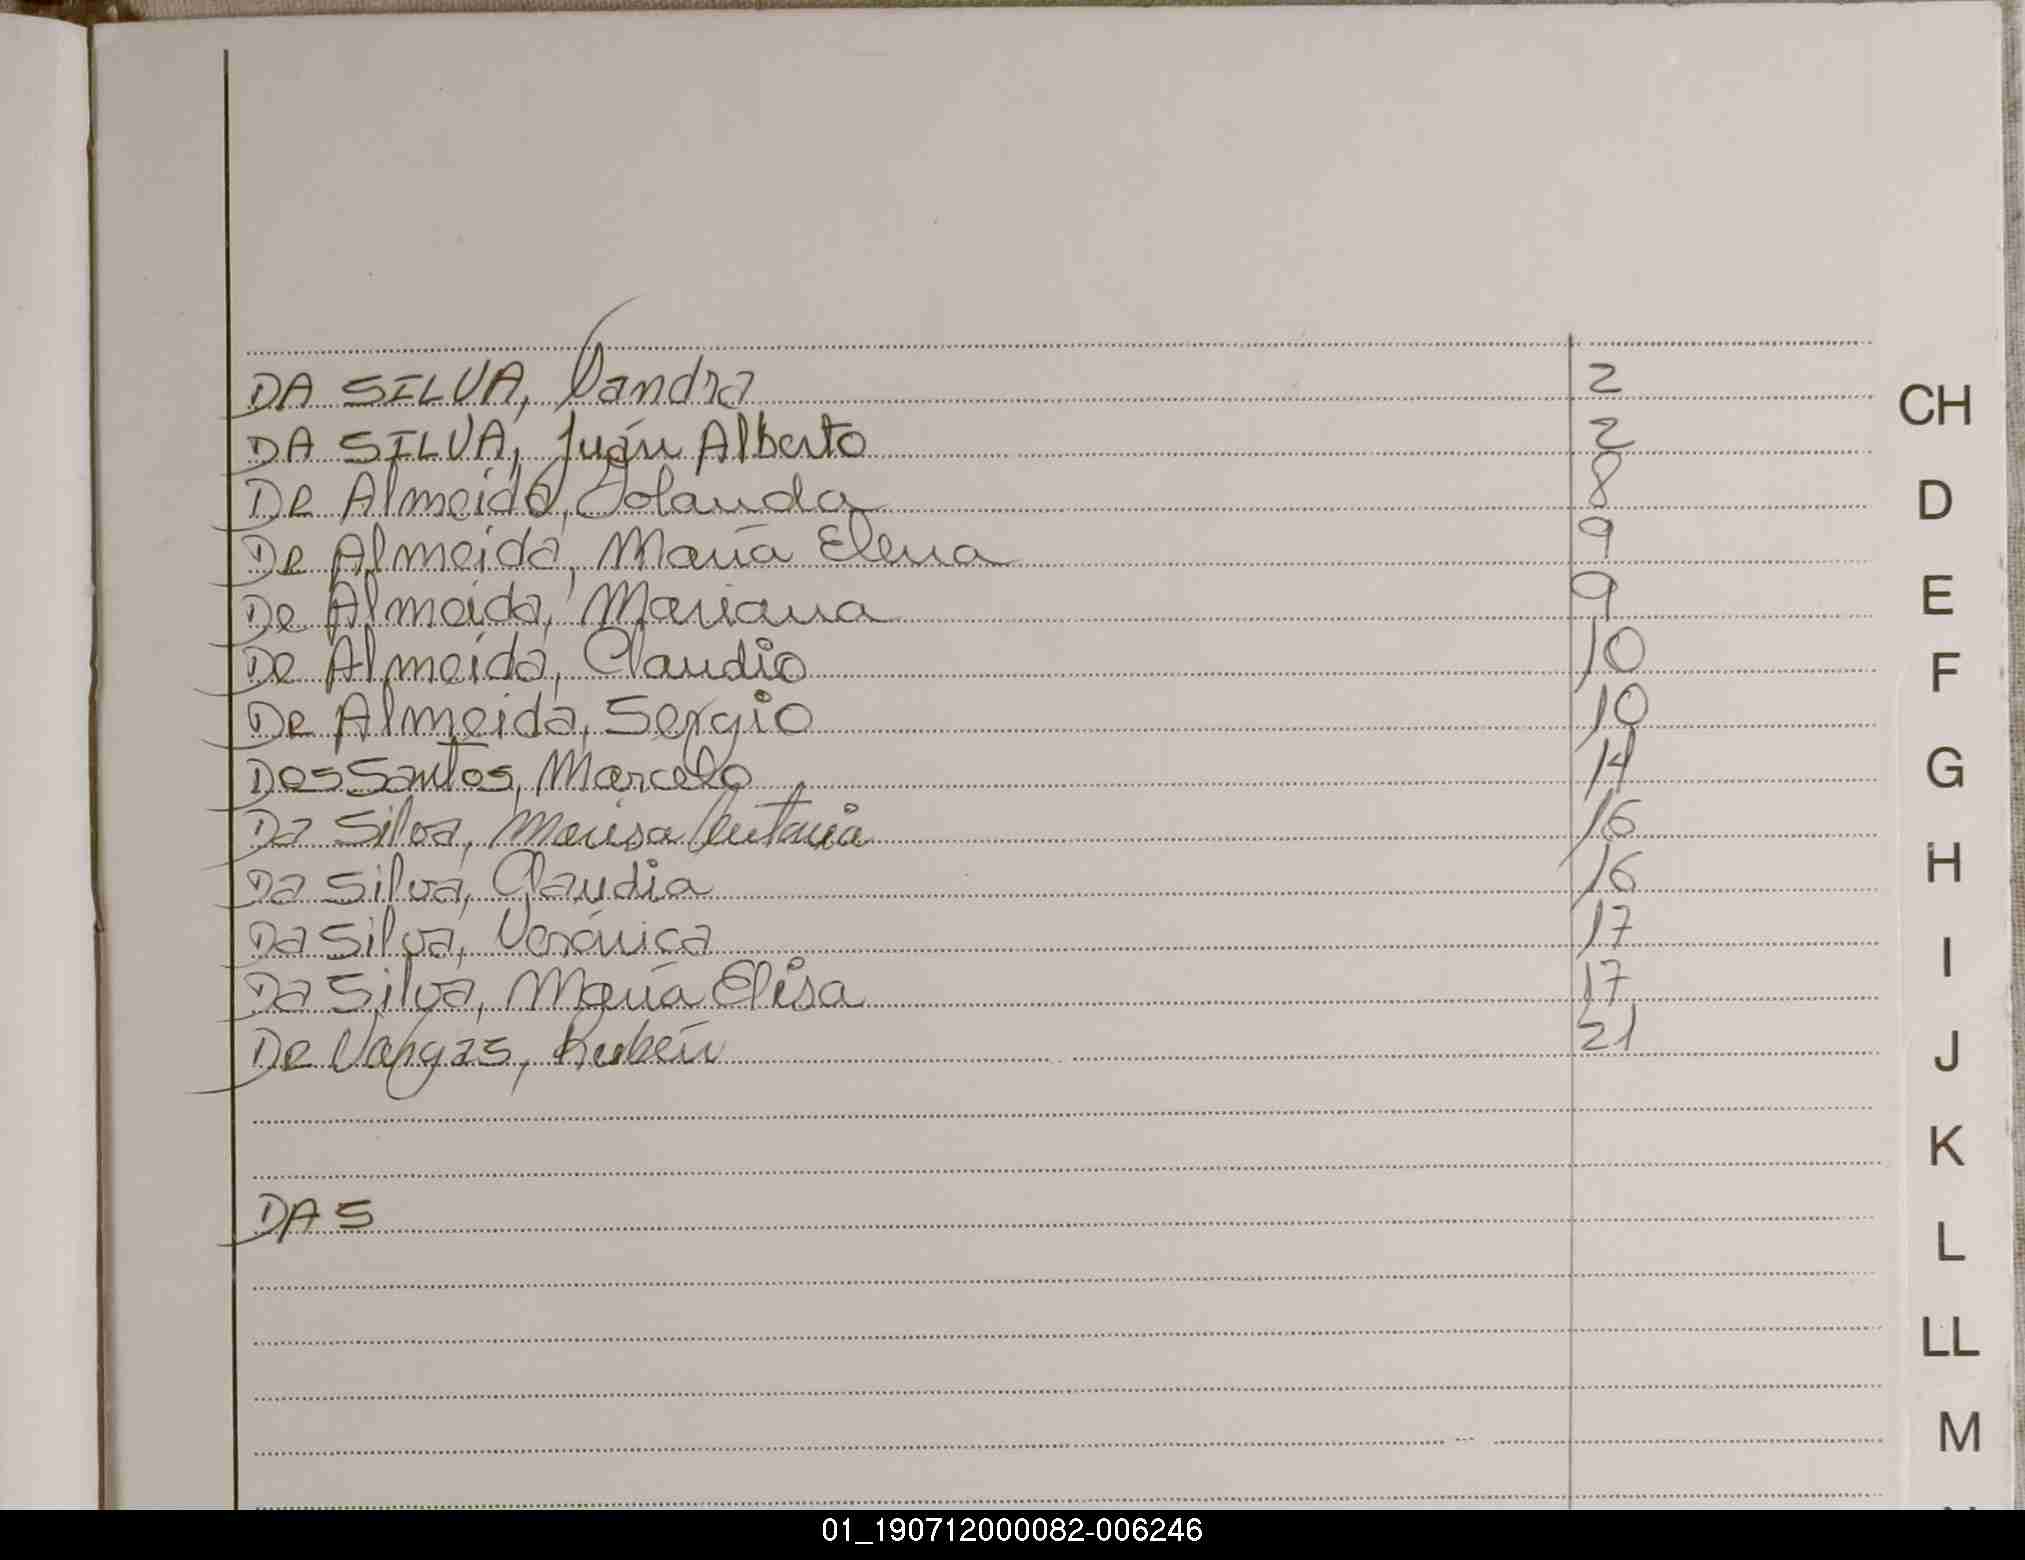 DA SILVA, Vandra 2
DA SILVA, Juán Alberto 2
De Almeida, Yolanda 8
De Almeida, María Elena 9
De Almeida, Mariana 9
De Almeida, Claudio 10
De Almeida, Sergio 10
Dos Santos, Marcelo 14
Da Silva, Marisa 16
Da Silva, Claudia 16
Da Silva, Verónica 17
Da Silva, María Elisa 17
De Vargas, Rubén 21
DA S
CH
D
E
F
G
H
I
J
K
L
LL
M
01_190712000082-006246